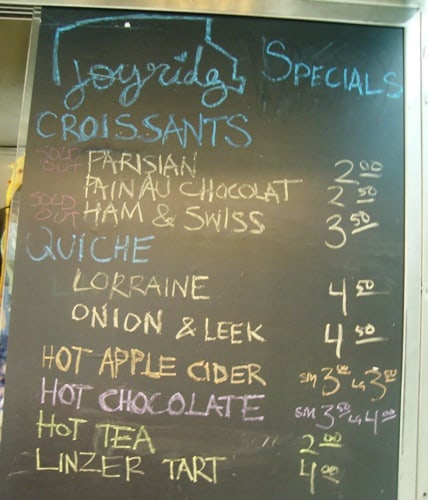 joyride SPECIALS
CROISSANTS
SOLD OUT PARISIAN 2.00
PAIN AU CHOCOLAT 2.50
SOLD OUT HAM & SWISS 3.50
QUICHE
LORRAINE 4.50
ONION & LEEK 4.50
HOT APPLE CIDER SM 3.00 LG 3.50
HOT CHOCOLATE SM 3.50 LG 4.00
HOT TEA 2.00
LINZER TART 4.00